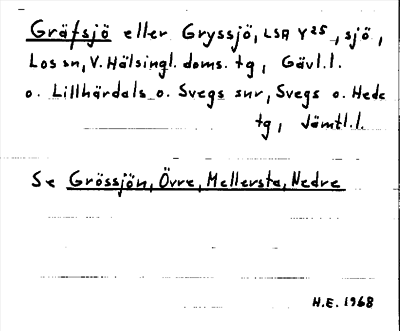 Gräfsjö eller Gryssjö, LSA Y25, sjö,
Los sn, V. Hälsingl. doms. tg, Gävl.l.
o. Lillhärdals o. Svegs snr, Svegs o. Hede
tg, Jämtl.l.
Se Grössjön, Övre, Mellersta, Nedre
H.E. 1968